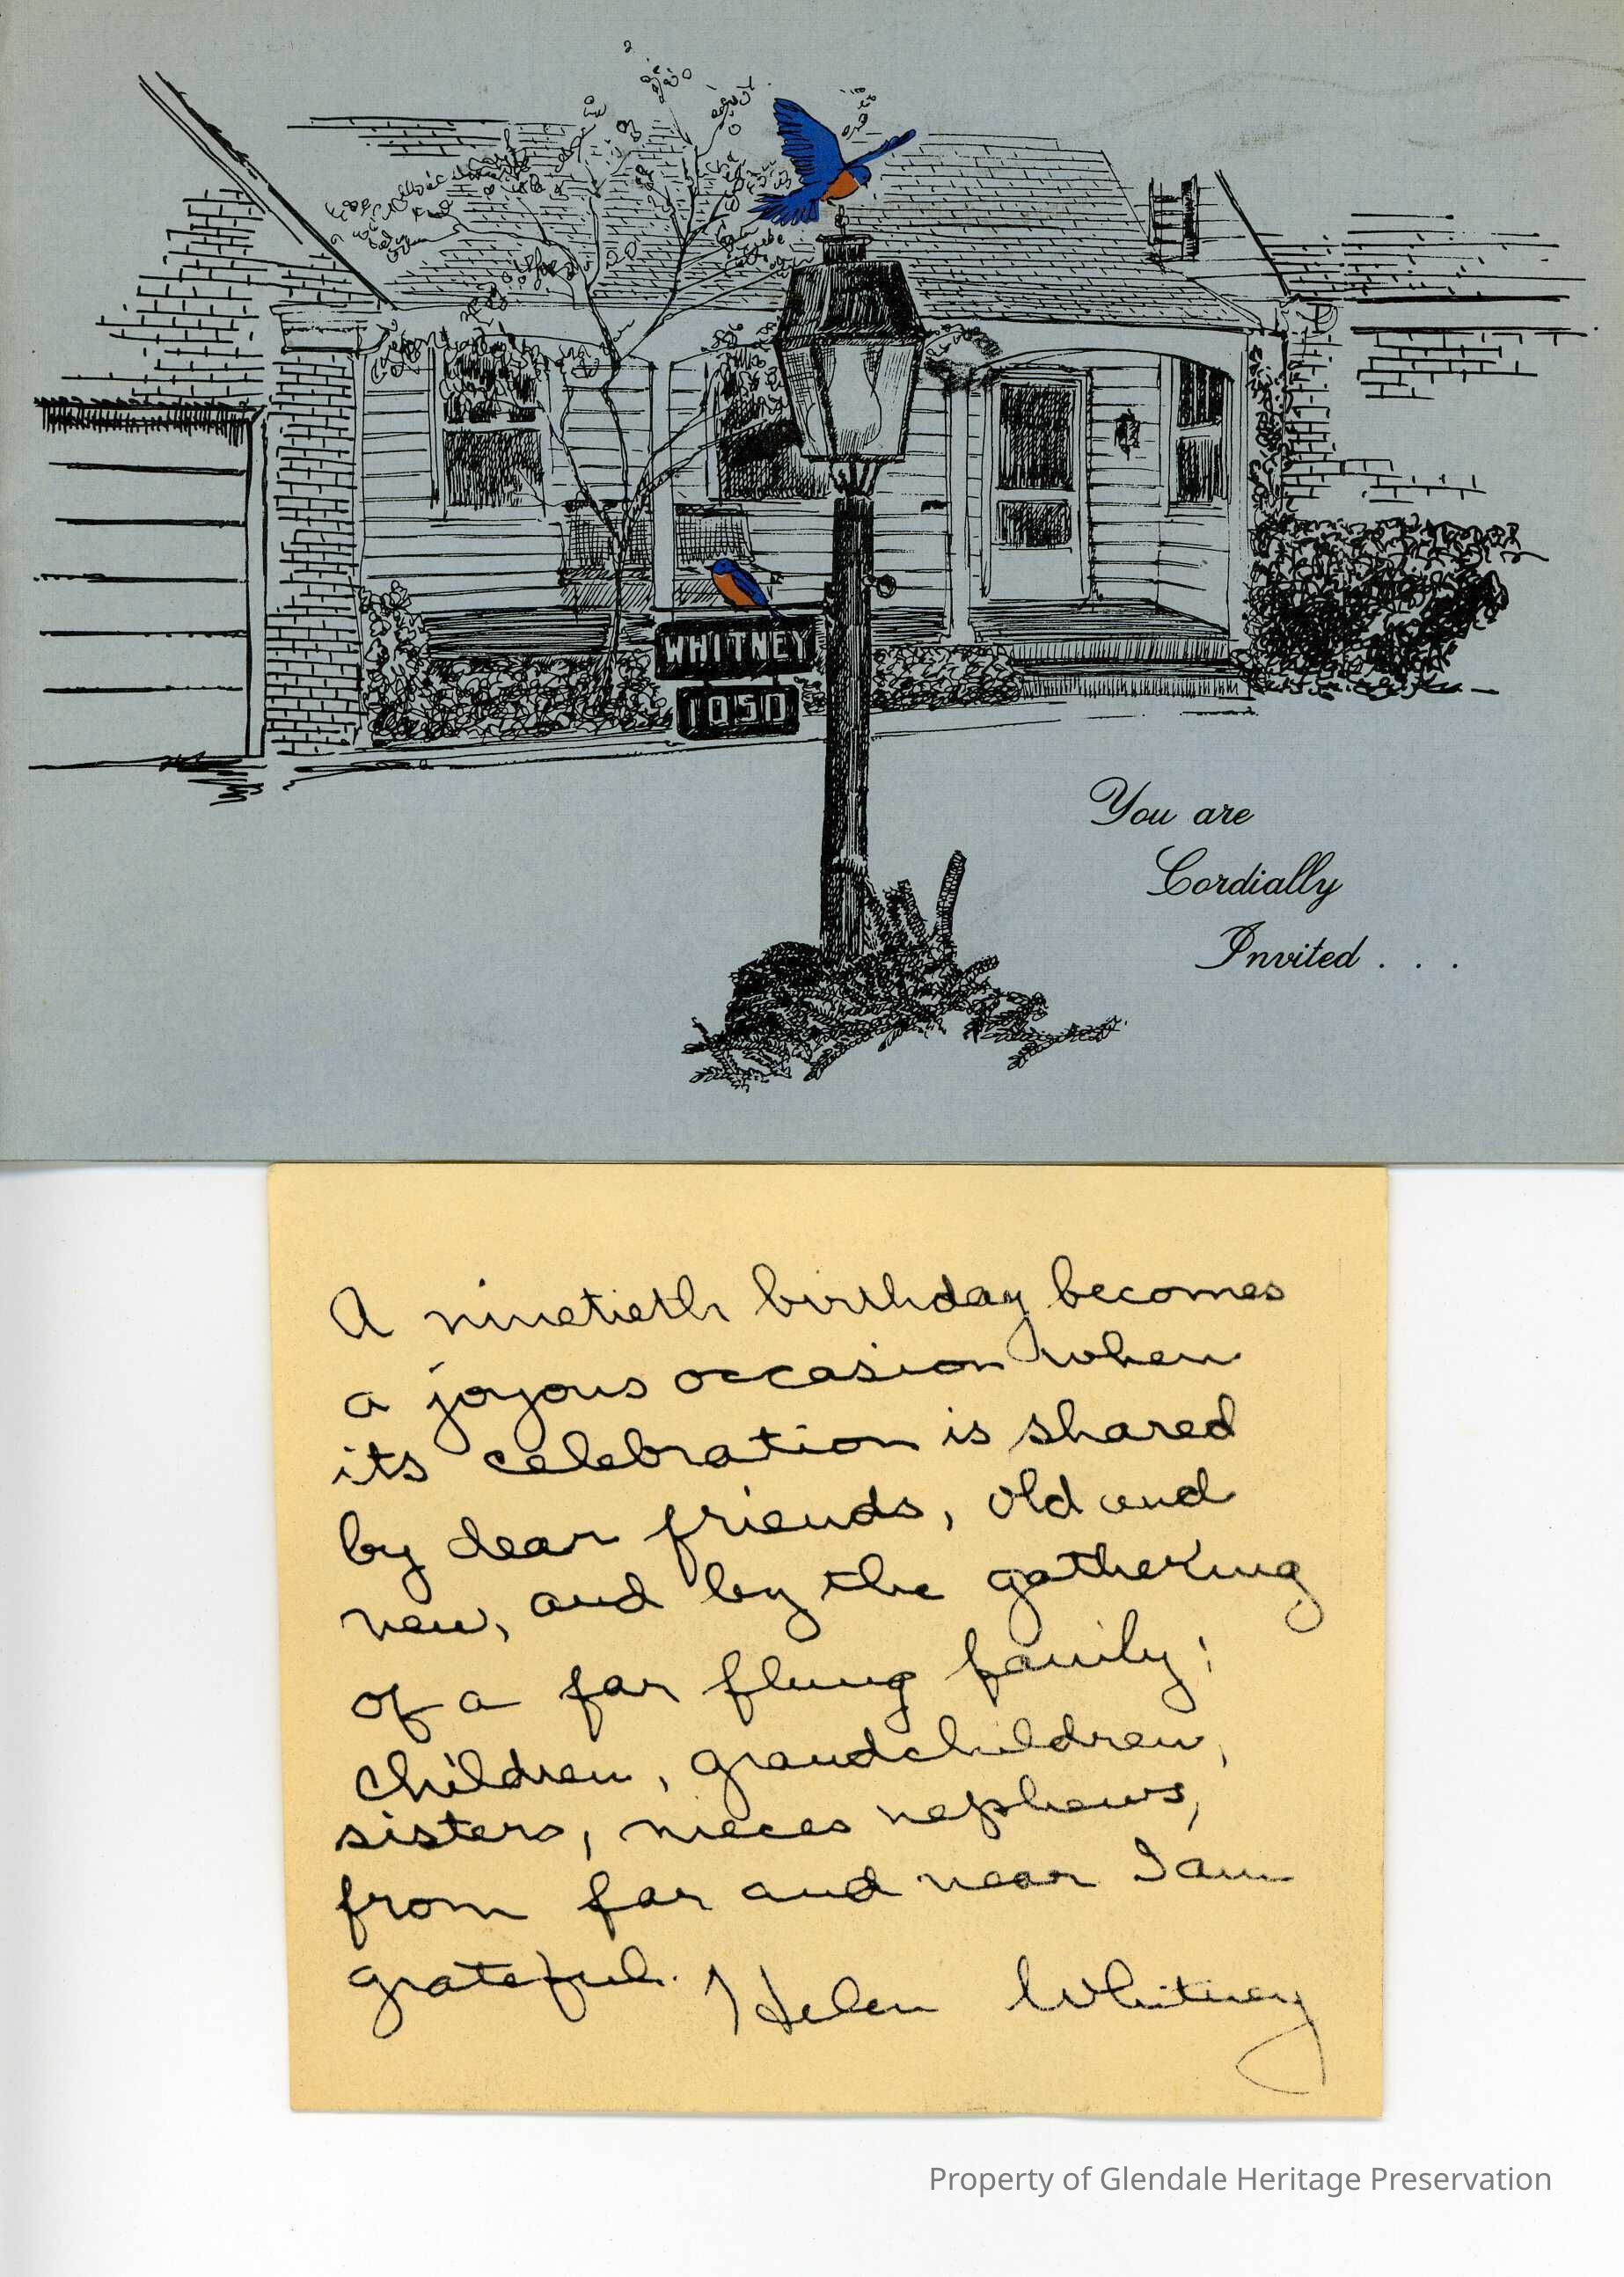 WHITNEY
1050
You are
Cordially
Invited . . .
A ninetieth birthday becomes
a joyous occasion when
its celebration is shared
by dear friends, old and
new, and by the gathering
of a far flung family;
children, grandchildren,
sisters, nieces nephews,
from far and near I am
grateful. Helen Whitney
Property of Glendale Heritage Preservation